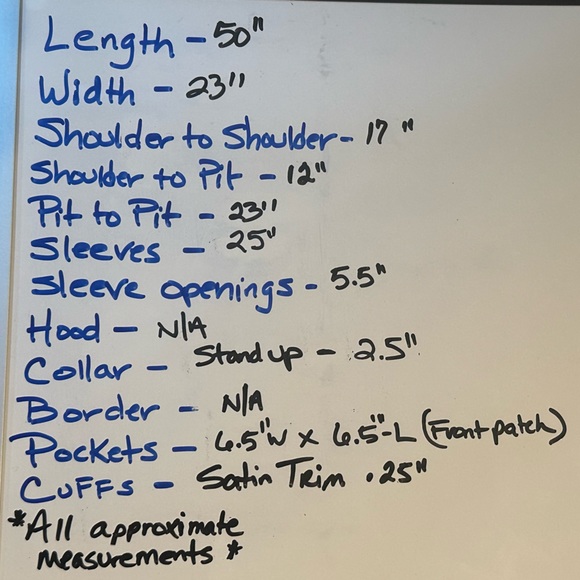 Length - 50"
Width - 23"
Shoulder to Shoulder - 17"
Shoulder to Pit - 12"
Pit to Pit - 23"
Sleeves - 25"
Sleeve openings - 5.5"
Hood - N/A
Collar - Stand up - 2.5"
Border - N/A
Pockets - 6.5"W x 6.5"-L (Front patch)
Cuffs - Satin Trim .25"
*All approximate
measurements*